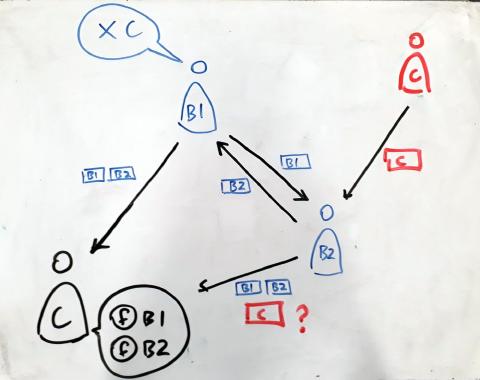 X C
B1
C
B1 B2
B1
B2
C
B2
B1 B2
C ?
C
f B1
f B2